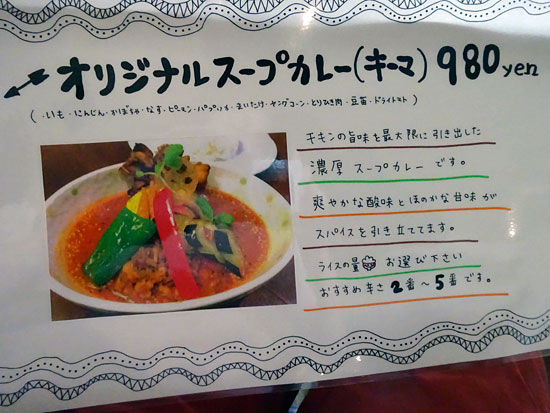 オリジナルスープカレー(キーマ) 980yen
(・いも・にんじん・かぼちゃ・なす・ピーマン・パプリカ・まいたけ・ヤングコーン・とりひき肉・豆苗・ドライトマト)
チキンの旨味を最大限に引き出した
濃厚スープカレーです。
爽やかな酸味とほのかな甘味が
スパイスを引き立ててます。
ライスの量お選び下さい
おすすめ辛さ2番〜5番です。